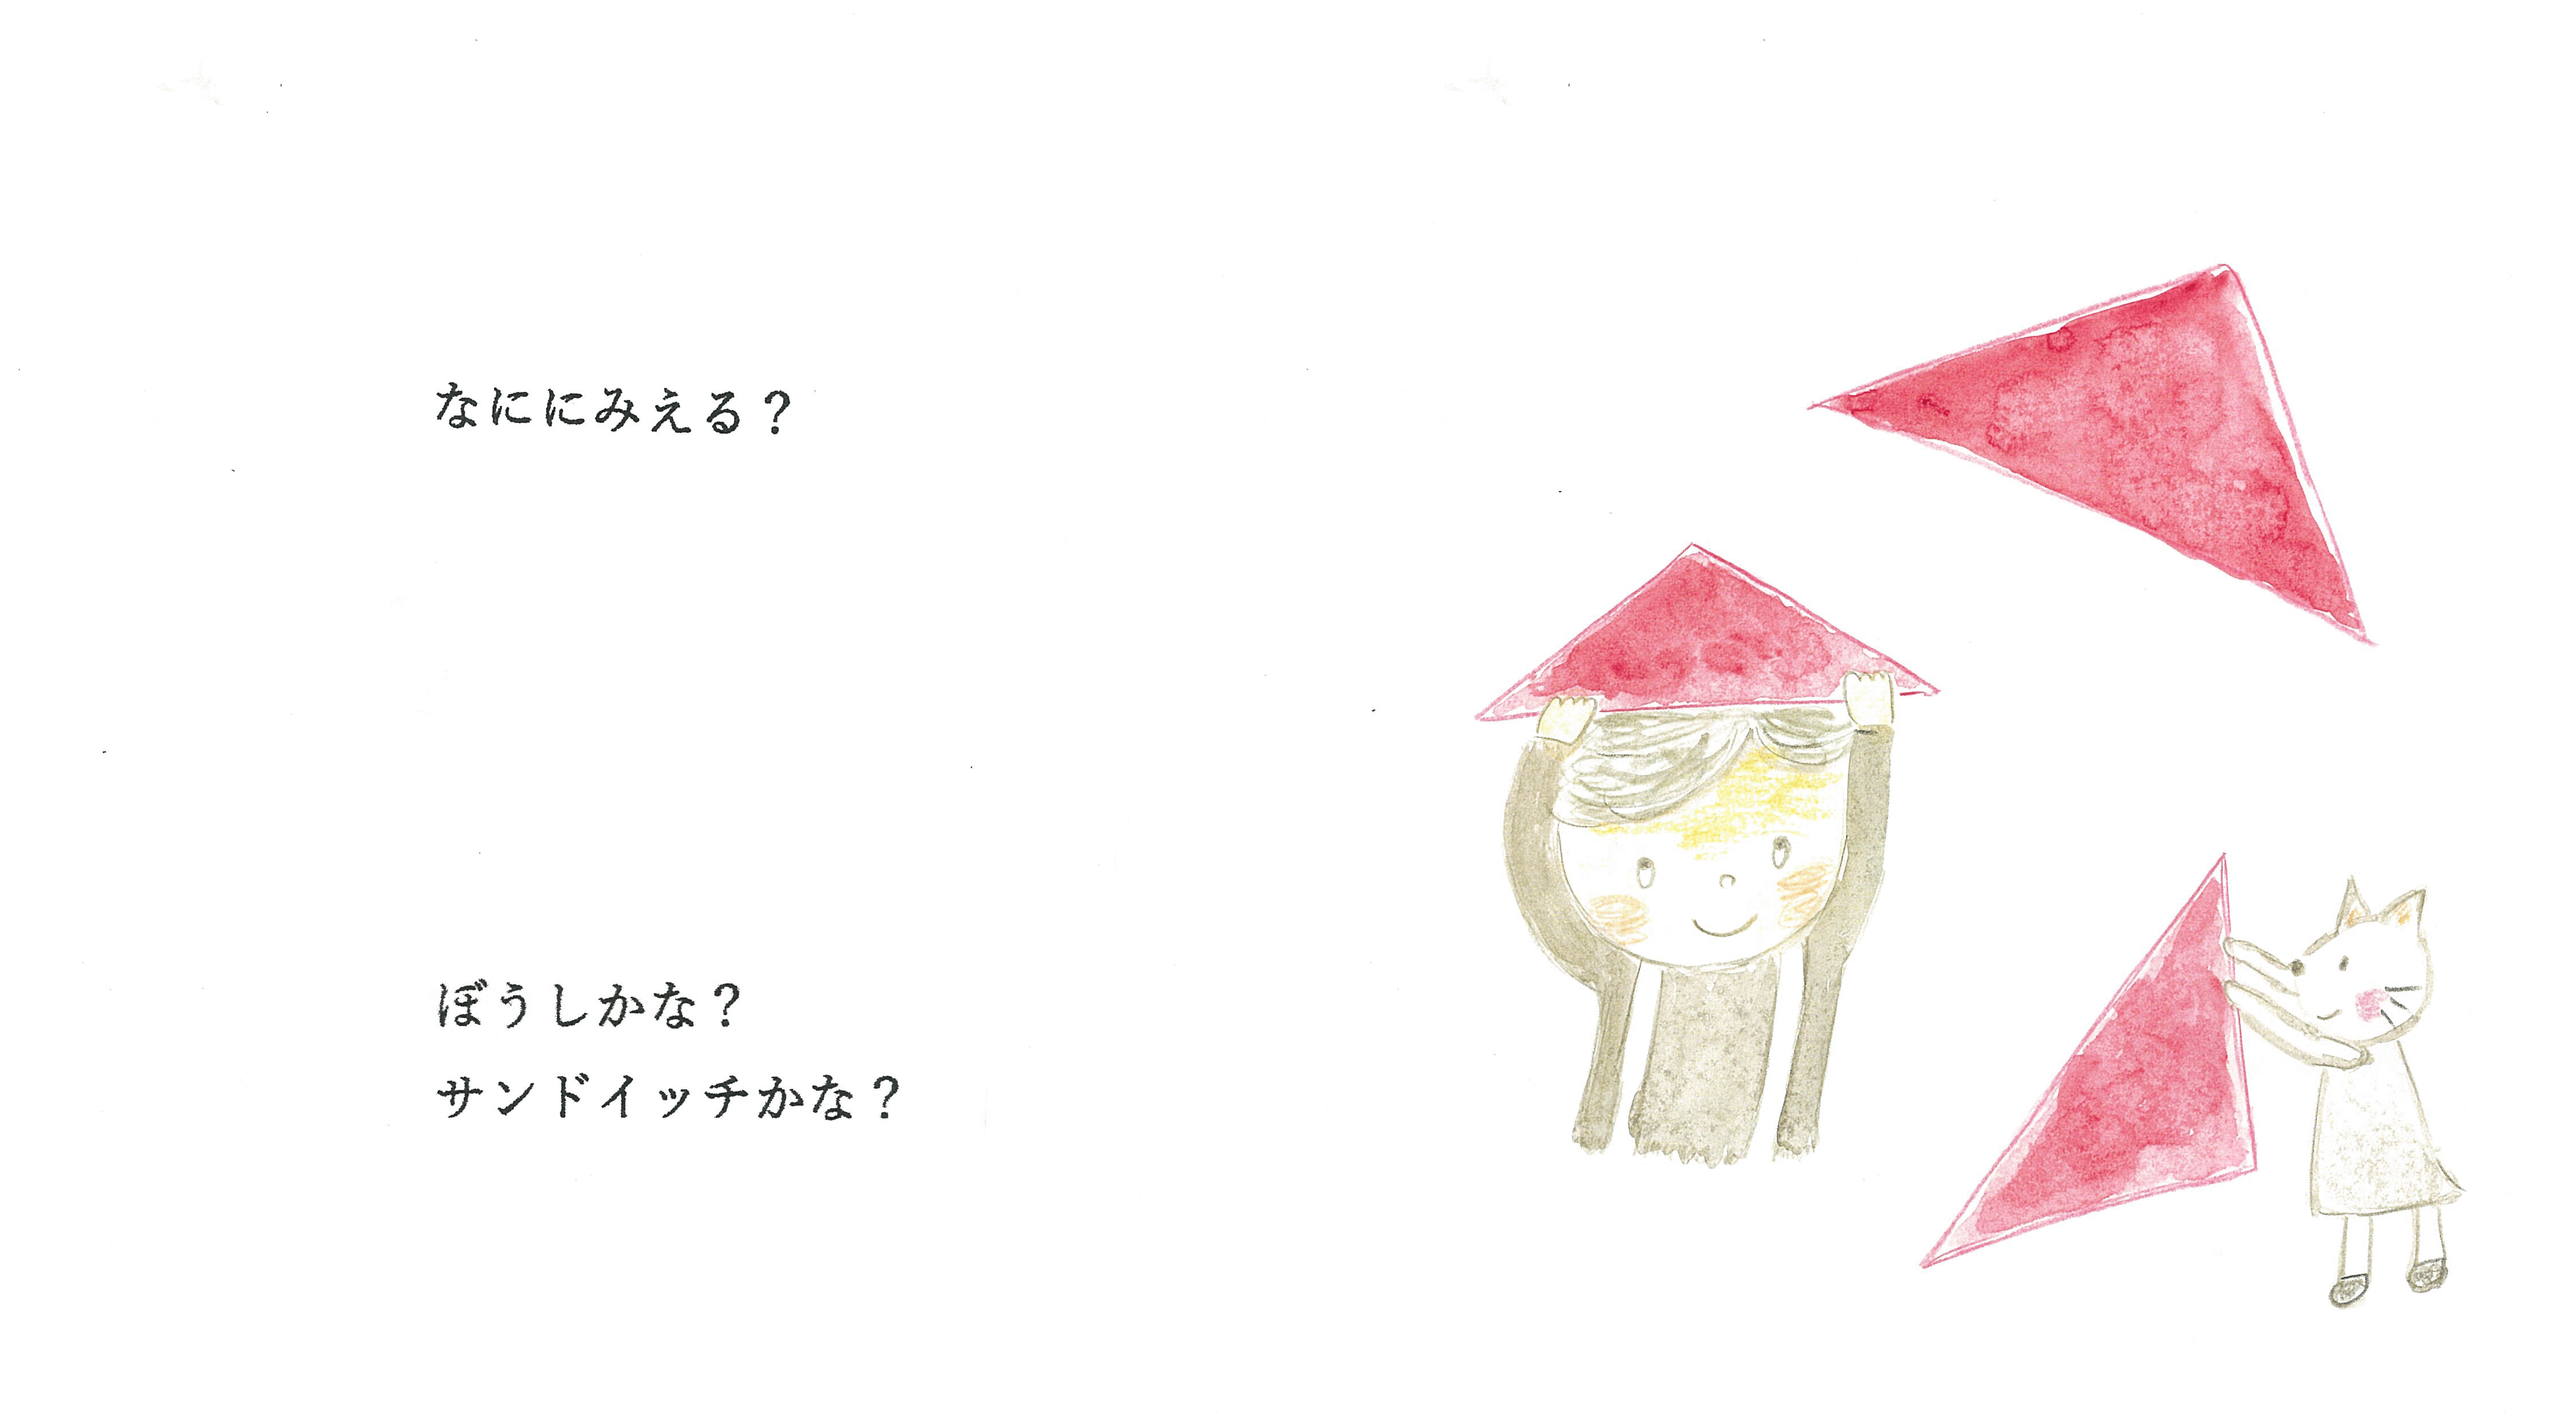 なににみえる？
ぼうしかな？
サンドイッチかな？